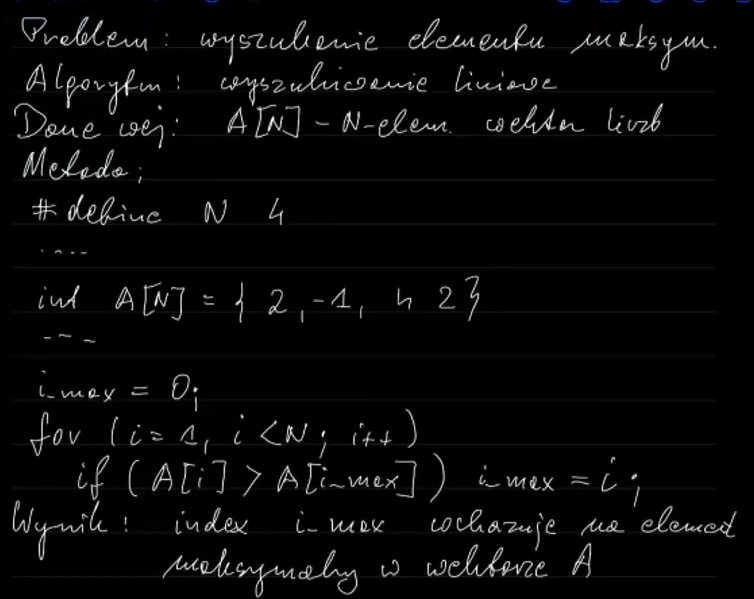 Problem: wyszukanie elementu maksym.
Algorytm: wyszukiwanie liniowe
Dane wej: A[N] - N-elem. wektor liczb
Metoda:
#define N 4
....
int A[N] = { 2, -1, 4 2}
---
i_max = 0;
for (i = 1, i < N; i++)
if (A[i] > A[i_max]) i_max = i;
Wynik: index i_max wskazuje na element
maksymalny w wektorze A